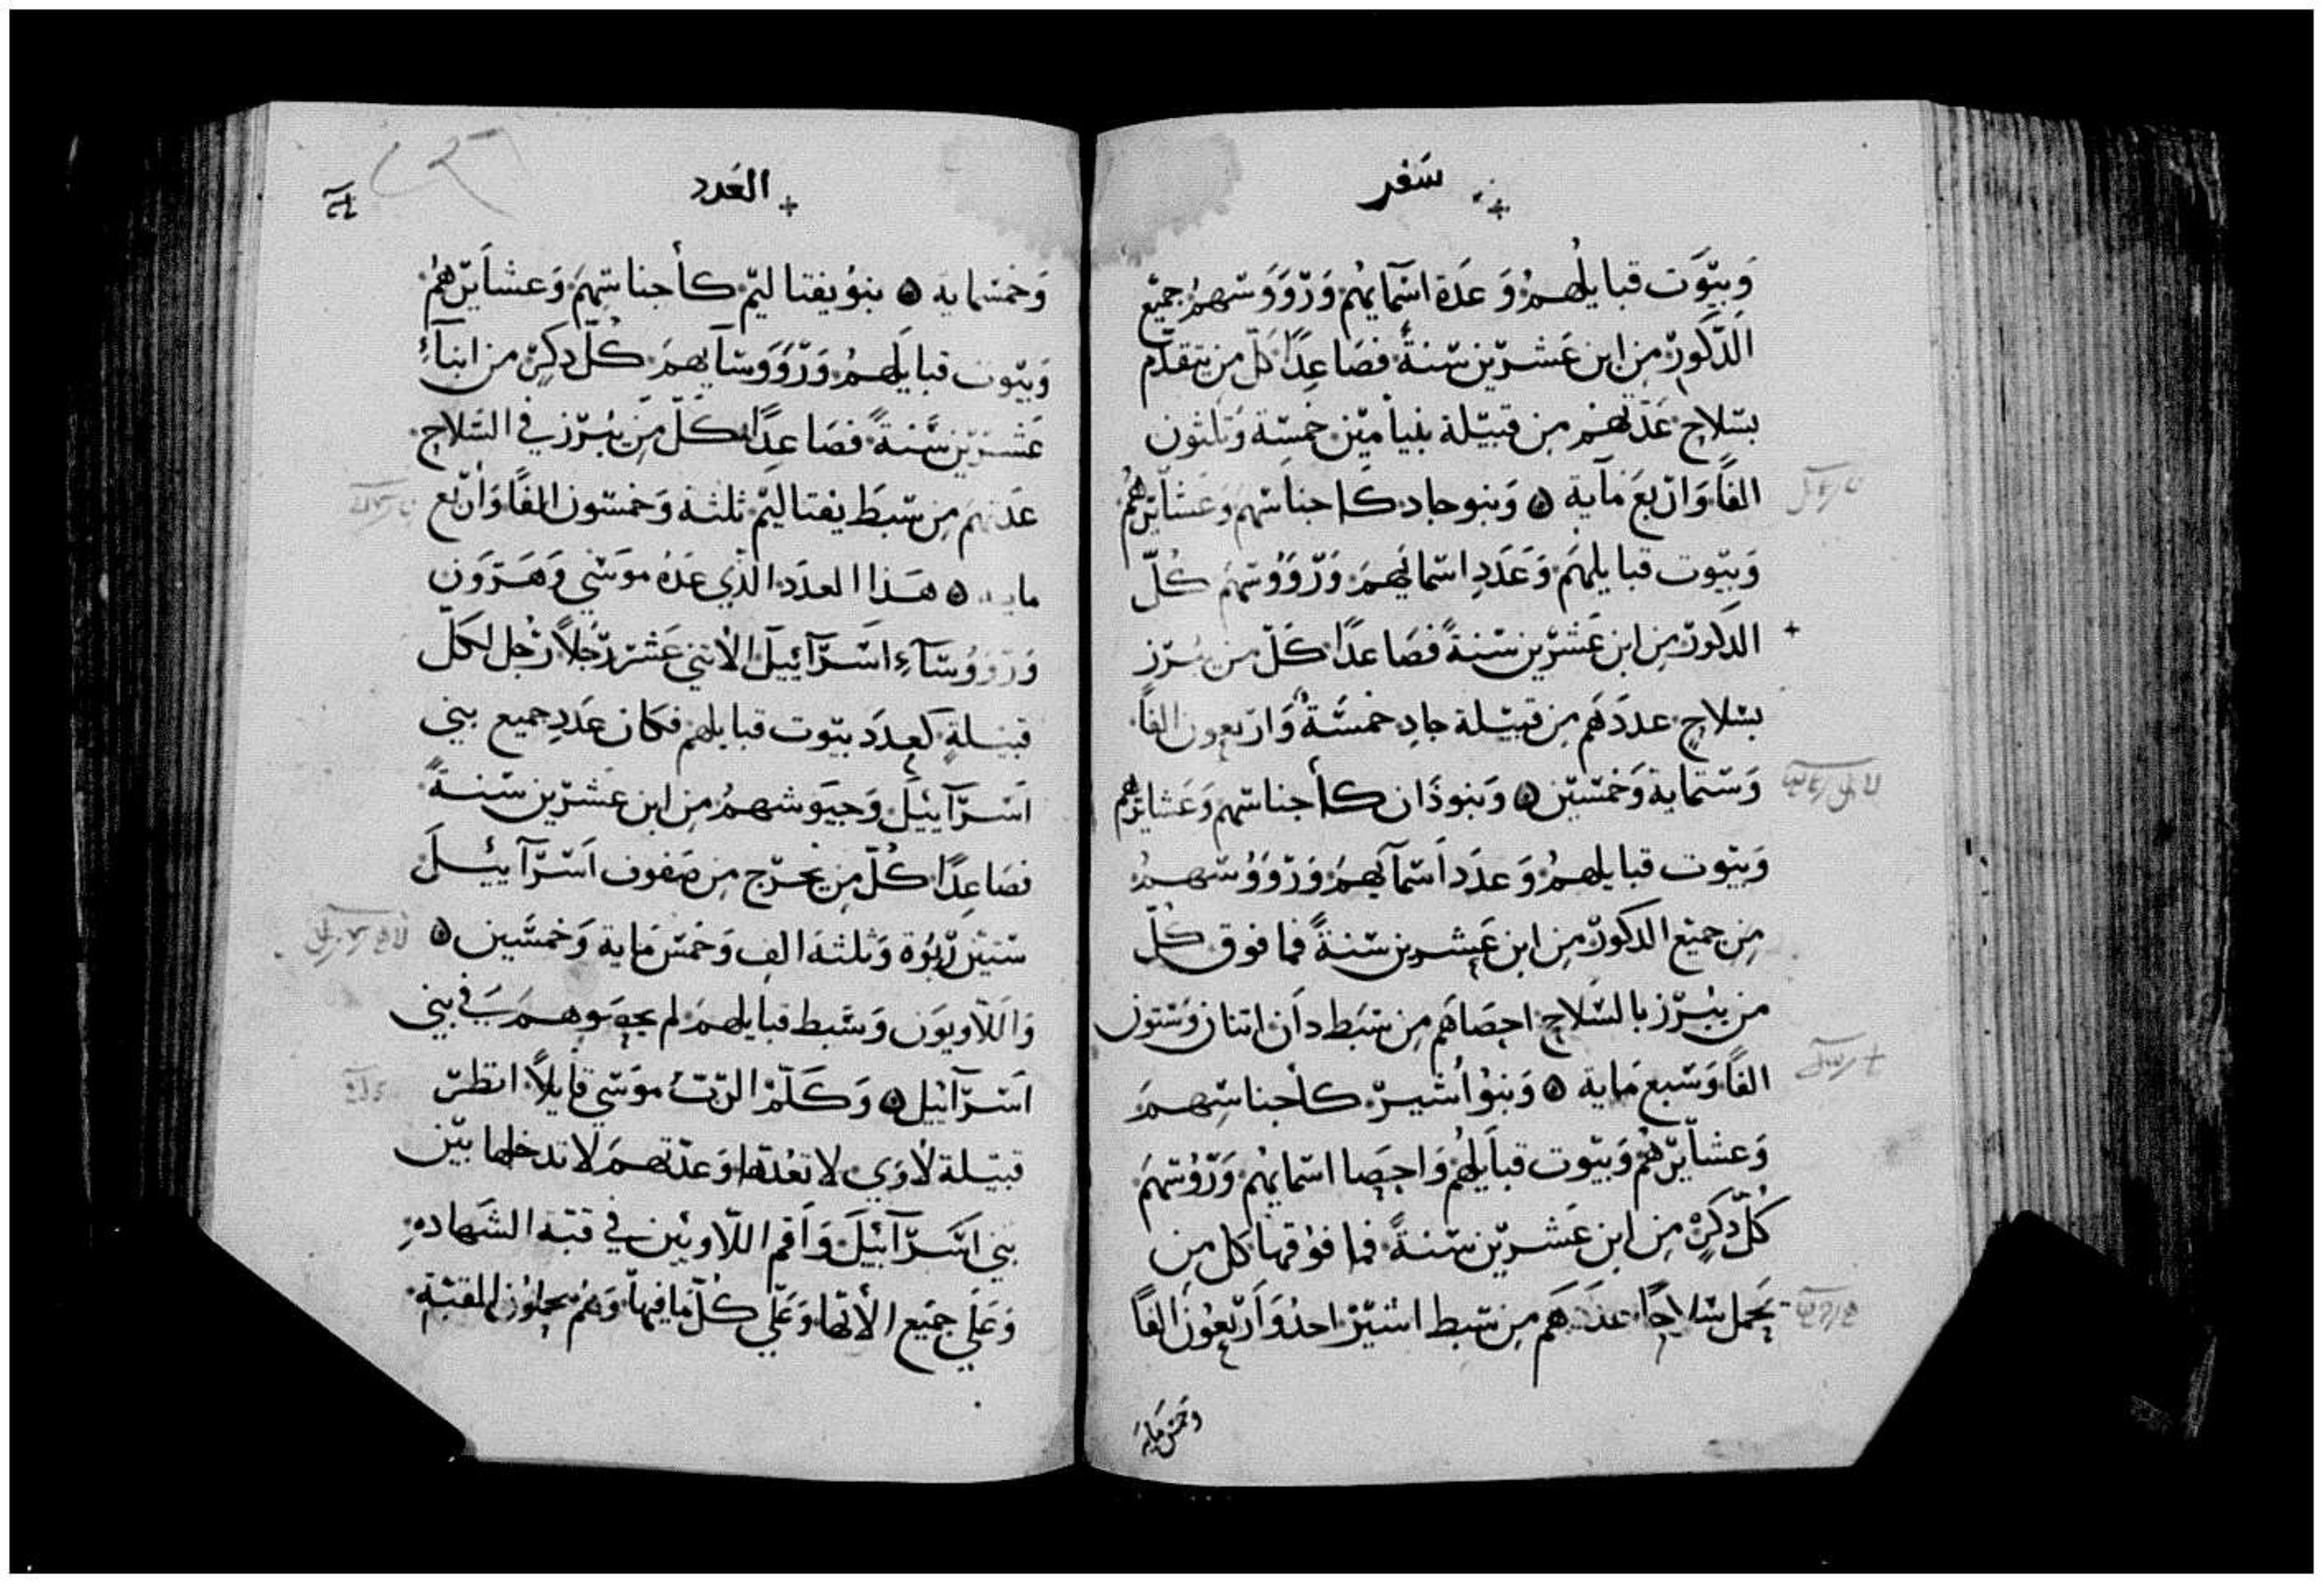 سفر
وَبيُوت قبايلهمُ وَعَدة اسمآيهُم وَرووَسهمُ جميع
الذكور من ابن عَشرين سنةً فصَاعِدًا كلّ من يتقدم
بسلاح عَدتهم من قبيلة بنيامين خمسة وَثلثون
الفًا وَاربعَ مَآية ۞ وَبنو جاد كاجناسهم وَعَشايرهُم
وَبيوت قبايلهَم وَعَدَدِ اسمائهمَ وَرووُسهمَ كُلّ
الذكور مِن ابن عَشرين سنةً فصَاعدًا كَلّ من يبرز
بسلاحٍ عددَهَم مِن قبيلة جادِ خمسَةُ وَاربعون الفاً
وَستماية وَخمسين ۞ وَبنو ذَان كأجناسهم وَعَشايرهم
وَبيوت قبايلهمُ وَعدَد اَسمآيهمَ وَرووَوُسهمُ
مِن جميع الدكور مِن ابن عَشرين سنةً فما فوق كُلّ
من يبُرز بالسَلاحِ احصَاهَم مِن سَبط دَان اتنان وَستون
الفًا وَسَبع مَاية ۞ وَبنوُ أشير كأجناسِهمَ
وَعشآيرهُم وَبيوت قبآيلهُم وَاحصَا اسمايهُم وَرؤسهمَ
كُلّ دكرٍ مِن ابن عَشرين سنةً فما فوُقها كل مِن
يَحمل سلاحًا عدَدهَم مِن سَبط اشير احدُ وَاَربَعوُن الفًا
وخمس مَايه
العَدد
وَخمسماية ۞ بنوُ يفتاليم كأجناسهمَ وَعشآيرهُم
وَبيوت قبايلَهمُ وَرووَسآيهمَ كُلّ دكرٍ من ابنآءِ
عَشرين سَّنةً فصَاعِدًا كَلّ مِن يبُرز في السَلاح
عَدتهَم مِن سَبطَ يفتاليم ثلثة وَخمسون الفًا وَأربع
مايه ۞ هَذا العدَد الذي عَدَهُ موسَي وَهَرَوَن
وَروُوسَآءِ اسَرآئيلَ الأتني عَشر رَجُلاً رَجُل لكلّ
قبيلةٍ كعدَد بيوت قبايلهم فكان عَدَدِ جميع بني
اَسرآئيلَ وَجيوَشهمُ مِن ابن عَشرين سنةً
فصَاعِدًا كُلّ مِن يَخرَج مِن صَفوف اَسرآئيلَ
سَتين ربُوَة وَثلثة الف وَخمَس مَاية وَخمسَين ۞
وَاللاويوَن وَسَبط قبايلهمَ لم يحصَوهمَ في بني
اَسرآئيل ۞ وَكَلَّمْ الربُ موسَي قآيلاً انظر
قبيلة لاوَي لا تعُدها وَعَدتهمَ لا تدخلها بين
بني اَسَرآئيَلَ وَاَقم اللاويين في قبة الشَهادهِ
وَعَلَي جمَيع الأتها وَعَلَي كُلّ مَا فيها وَهُم يحملوُن القبة